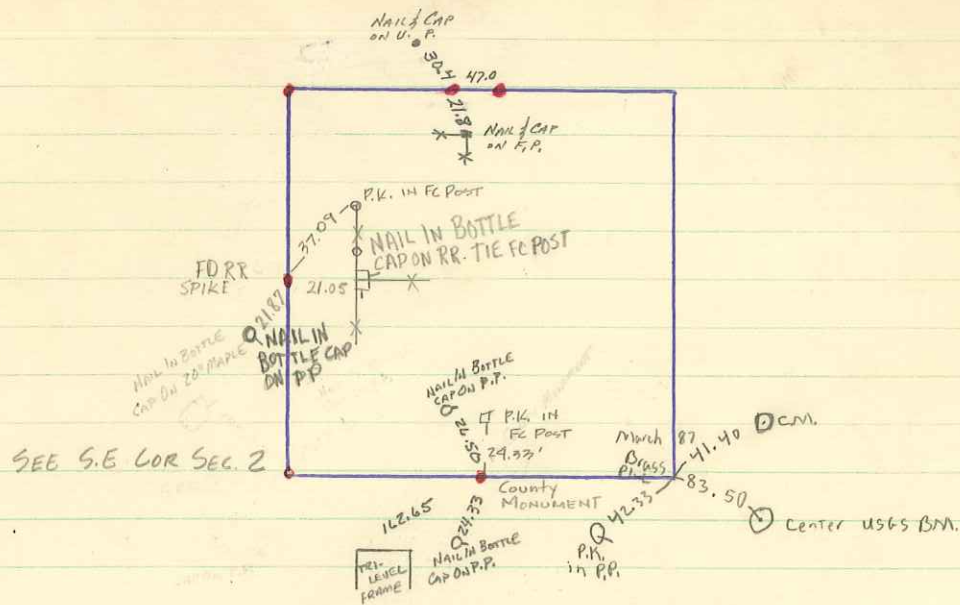 NAIL & CAP
ON U.P.
30.4
47.0
21.8
NAIL & CAP
ON F.P.
P.K. IN FC POST
37.09
NAIL IN BOTTLE
CAP ON RR. TIE FC POST
FD RR
SPIKE
21.05
21.87
NAIL IN
BOTTLE CAP
ON PP
NAIL IN BOTTLE
CAP ON 20" MAPLE
NAIL IN BOTTLE
CAP ON P.P.
26.50
P.K. IN
FC POST
24.33'
March 87
Brass
41.40
C.M.
SEE S.E COR SEC. 2
County
MONUMENT
83.50
Center USGS BM.
42.33
P.K.
in P.P.
162.65
24.33
NAIL IN BOTTLE
CAP ON P.P.
TRI-
LEVEL
FRAME